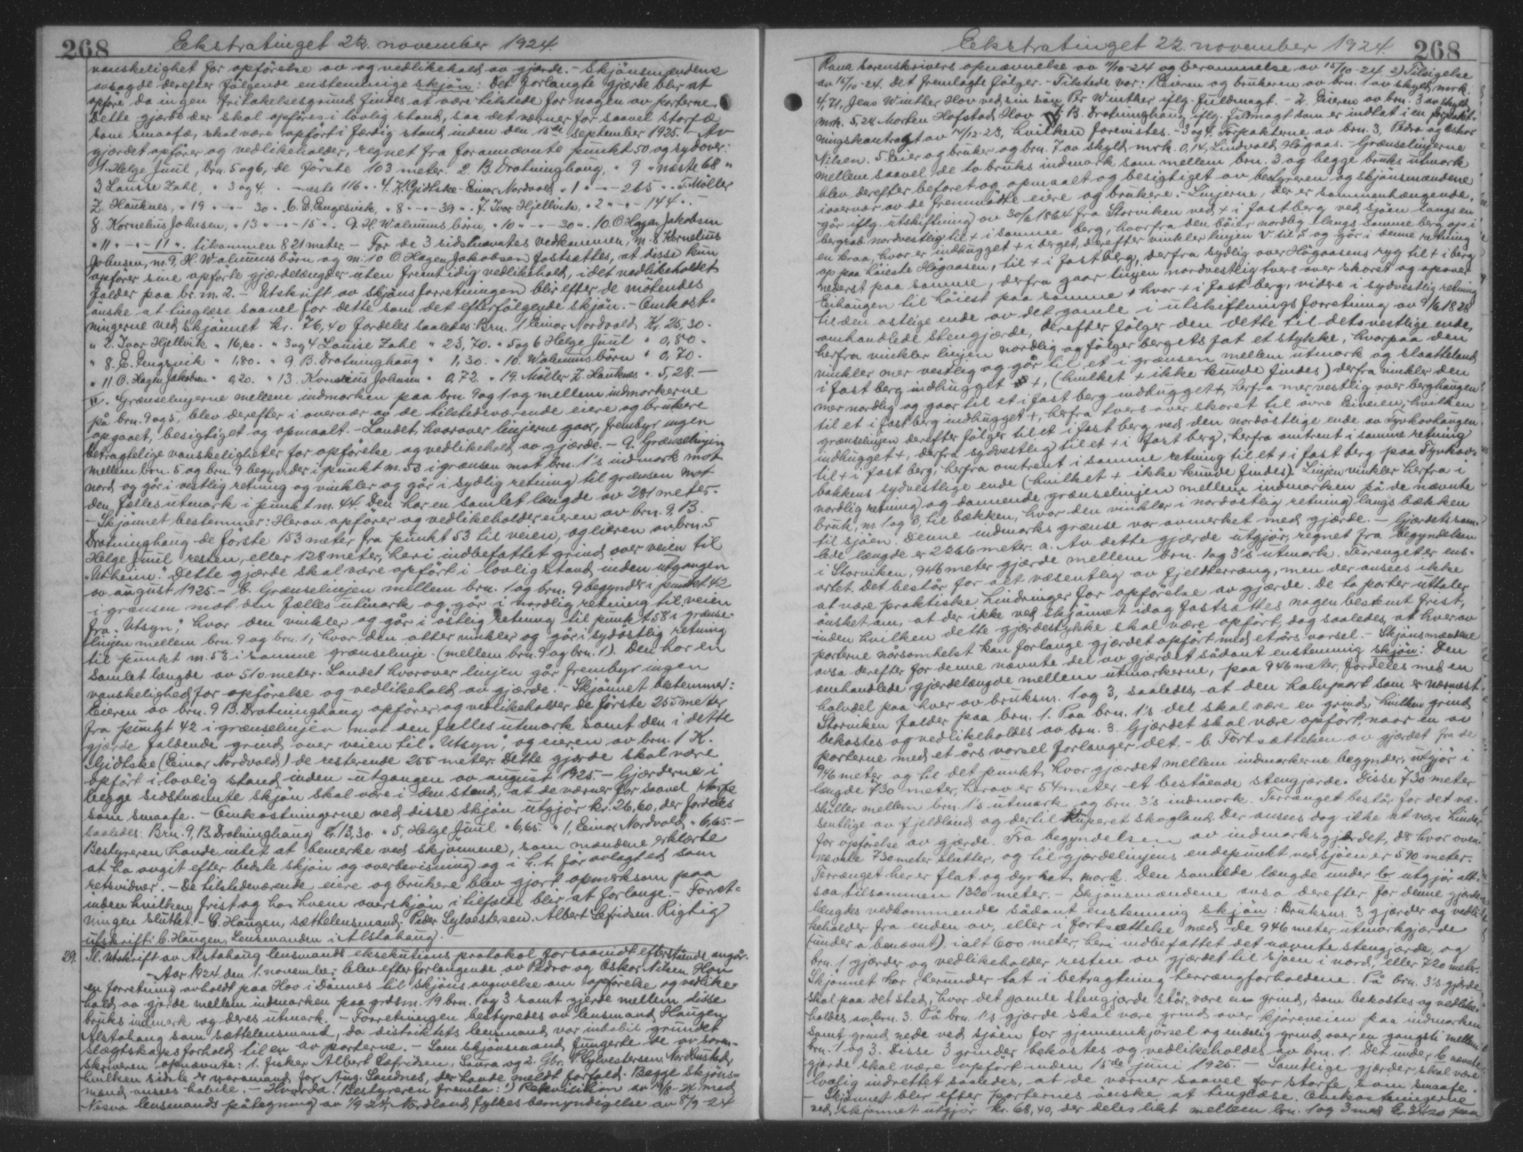 268 Ekstratinget 22. november 1924.
vanskelighet for opførelse av og vedlikehold av gjærde. - Skjønsmændene
avsagde derefter følgende enstemmige skjøn: Det forlangte gjærde blir at
opføre da ingen fritakelsesgrund findes at være tilstede for nogen av parterne.
Dette gjærde der skal opføres i lovlig stand, saa det værner for saavel storfæ
som smaafæ, skal være opført i færdig stand inden den 15de september 1925. - Av
gjerdet opfører og vedlikeholder, regnet fra forannævnte punkt 50 og sydover:
1. Helge Juul, brn. 5 og 6, de første 103 meter. 2. B. Drotninghaug, " 9 " næste 68 "
3 Lauise Zahl, " 3 og 4. - næste 116 " 4. K. Gidtske - Einar Nordvold, " 1 " - - 265 - 5. Møller
Z Hauknes, " 19 " - - 30 " 6. E. Engesvik, " 8 - - 39 " 7. Ivar Hjellvik " 2 " - - 144 "
8 Kornelius Johnsen, " 13 " - - 15 " 9. H. Walnums børn, " 10 " - - 30 " 10. O. Hagen Jakobsen
" 11 " - - 11 " tilsammen 821 meter. - For de 3 sidstnævntes vedkommen, nr. 8 Kornelius
Johnsen, nr. 9 H. Walnums børn og nr. 10 O. Hagen Jakobsen fastsættes, at disse kun
opfører sine opførte gjærdelængder uten fremtidig vedlikehold, idet vedlikeholdet
falder paa br. nr. 2. - Utskrift av skjønsforretningen blir efter de møtendes
ønske at tinglæse saavel for dette som det efterfølgende skjøn. - Omkost-
ningerne ved skjønnet kr. 76,40 fordeles saaledes: Brn. 1 Einar Nordvold, kr. 25,30 -
" 2. Ivar Hjellvik " 16,60 " 3 og 4 Lauise Zahl " 23,70 " 5 og 6 Helge Juul " 0,80 -
" 8. E. Engesvik " 1,80 " 9 B. Drotninghaug " 1,30 " 10. Walnums børn " 0,70 -
" 11 O. Hagen Jakobsen " 0,20 " 13. Kornelius Johnsen " 0,72 " 19. Møller Z. Hauknes " 5,28 -
IV. Grænselinjerne mellem indmarken paa brn. 9 og 1 og mellem indmarkerne
på brn. 9 og 5, blev derefter i overvær av de tilstedeværende eiere og brukere
opgaaet, besigtiget og opmaalt. - Landet, hvorover linjerne gaar, frembyr ingen
betragtelige vanskeligheter for opførelse og vedlikehold av gjærde. - a. Grænselinjen
mellem brn. 5 og brn. 9 begynder i punkt nr. 53 i grænsen mot brn. 1's indmark mot
nord og går i vestlig retning og vinkler og går i sydlig retning til grænsen mot
den fælles utmark i punkt nr. 44. Den har en samlet længde av 281 meter.
- Skjønnet bestemmer: Herav opfører og vedlikeholder eieren av brn. 9 B.
Drotninghaug de første 153 meter, fra punkt 53 til veien, og eieren av brn. 5
Helge Juul resten, eller 128 meter, heri indbefattet grind over veien til
"Utheim". Dette gjærde skal være opført i lovlig stand inden utgangen
av august 1925. - b. Grænselinjen mellem brn. 1 og brn. 9 begynder i punkt 42
i grænsen mot den fælles utmark og går i nordlig retning til veien
fra "Utsyn", hvor den vinkler og går i østlig retning til punkt 58 i grænse-
linjen mellem brn. 9 og brn. 1, hvor den atter vinkler og går i sydøstlig retning
til punkt nr. 53 i samme grænselinje (mellem brn. 9 og brn. 1). Den har en
samlet længde av 510 meter. Landet hvorover linjen går frembyr ingen
vanskelighed for opførelse og vedlikehold av gjærde. - Skjønnet bestemmer:
Eieren av brn. 9 B. Drotninghaug opfører og vedlikeholder de første 255 meter
fra punkt 42 i grænselinjen mot den fælles utmark samt den i dette
gjærde faldende grind over veien til "Utsyn", og eieren av brn. 1 K.
Gidtske (Einar Nordvold) de resterende 255 meter. Dette gjærde skal være
opført i lovlig stand inden utgangen av august 1925. - Gjærderne i
begge sidstnævnte skjøn skal være i den stand, at de værner for saavel storfæ
som smaafæ. - Omkostningerne ved disse skjøn utgjør kr. 26,60, der fordeles
saaledes: Brn. 9, B. Drotninghaug kr. 13,30 " 5, Helge Juul " 6,65 " 1, Einar Nordvold " 6,65 -
Bestyreren havde intet at bemerke ved skjønnene, som mændene erklærte
at ha avgit efter bedste skjøn og overbevisning og i h. t. før avlagt ed som
retsvidner. - De tilstedeværende eiere og brukere blev gjort opmerksom paa
inden hvilken frist og hos hvem overskjøn i tilfælde blir at forlange. - Forret-
ningen sluttet. - C. Haugen, sættelensmand, Peder Sylvestersen. Albert Leifidsen. Rigtig
utskrift: C. Haugen. Lensmanden i Alstahaug.
29. Tl. Utskrift av Alstahaug lensmands eksekutions protokol forsaavidt efterstaaende angår.
- Aar 1924 den 1. november, blev efter forlangende av Pedro og Oskar Nilsen, Hov
en forretning avholdt paa Hov i Dønnes til skjøns angivelse om opførelse og vedlike-
hold av gjærde mellem indmarken paa grdsnr. 19 brn. 1 og 3 samt gjærde mellem disse
bruks indmark og deres utmark. - Forretningen bestyredes av lensmand Haugen
Alstahaug som sættelensmand, da distriktets lensmand var inhabil grundet
slægtskapsforhold til en av parterne. - Som skjønsmænd fungerte de av soren-
skriveren opnævnte: 1. fisker Albert Leifidsen, Laura og 2. Gbr. P. Sylvestersen Nordhusted,
hvilken sidste er varamand for Aug. Sandnes, der havde meldt forfald. Begge skjøns-
mænd ansees habile. - Hvorda: Bestyreren fremla: 1) Rekvisition av 4/8-24 med
Næsna lensmands påtegning av 1/9 24, Nordland fylkes bemyndigelse av 8/9-24
Ekstratinget 22. november 1924. 268
Rana sorenskrivers opnævnelse av 11/10-24 og berammelse av 15/10-24. 2) Tilsigelse
av 15/10-24. Det fremlagte følger. - Tilstede var: 1. Eieren og brukeren av brn. 1 av skyld mrk.
4,71, Jens Winther Hov ved sin søn Per Winther iflg. fuldmagt. - 2. Eieren av brn. 3 av skyld
mrk. 5,28 Morten Hofstad, Hov ved B. Drotninghaug iflg. fuldmagt som er indtat i en forpagt-
ningskontrakt av 14/12-23, hvilken forevistes. - 3 og 4. Forpagterne av brn. 3, Pedro og Oskar
Nilsen. 5. Eier og bruker av brn. 7 av skyld mrk. 0,14, Lindvald Høgaas. - Grænselinjerne
mellem saavel de to bruks indmark som mellem brn. 3 og begge bruks utmark
blev derefter befaret og opmaalt og besigtiget av bestyreren og skjønsmændene
i overvær av de fremmøtte eiere og brukere. - Linjerne, der er sammenhængende,
går iflg. utskiftning av 30/6 1864 fra Storviken ved + i fastberg ved sjøen langs en
bergrab nordvestlig til + i samme berg, hvorfra den bøier nordlig langs samme berg op i
en kraa, hvor er indhugget + i berget, derefter vinkler linjen V til S og går i denne retning
op paa høieste Høgaasen, til + i fast berg, derfra sydlig over Høgaasens ryg til + i berg
nederst paa samme, derfra gaar linjen nordvestlig tvers over skoret og op over
Eihaugen til høiest paa samme, hvor + i fast berg, videre i sydvestlig retning
til den østlige ende av det gamle i utskiftningsforretning av 9/6 1828
omhandlede stengjærde, derefter følger den dette til dets vestlige ende,
herfra vinkler linjen nordlig og følger bergets fot et stykke, hvorpaa den
vinkler mer vestlig og går til et i grænsen mellem utmark og slaatteland
i fast berg indhugget +, (hvilket + ikke kunde findes) derfra vinkler den
mer nordlig og gaar til et i fast berg indhugget +, herfra mer vestlig over berghaugen
til et i fast berg indhugget +, herfra tvers over skoret til øvre Eiveien, hvilken
grænselinjen derefter følger til et i fast berg ved den nordøstlige ende av Tyvhovhaugen
indhugget +, derfra sydvestlig til et + i fast berg, herfra omtrent i samme retning
til + i fast berg, herfra omtrent i samme retning til et + i fast berg paa Tyvhov-
bakkens sydvestlige ende (hvilket + ikke kunde findes). Linjen vinkler herfra i
nordlig retning og dannende grænselinjen mellem indmarken på de nævnte
bruk, nr. 1 og 3, til bækken, hvor den vinkler i nordøstlig retning langs bækken
til sjøen. Denne indmarks grænse var avmerket med gjærde. - Gjærdets sam-
lede længde er 2266 meter. a. Av dette gjærde utgjør, regnet fra begyndelsen
i Storviken, 946 meter gjærde mellem brn. 1 og 3's utmark. Terrænget er ens-
artet. Det består for det væsentlig av fjeldterræng, men der ansees ikke
at være praktiske hindringer for opførelse av gjærde. De to parter uttaler
ønsket om, at der ikke ved skjønnet idag fastsættes nogen bestemt frist,
inden hvilken dette gjærdestykke skal være opført, dog saaledes, at hver av
parterne naarsomhelst kan forlange gjærdet opført med et års varsel. - Skjønsmændene
avsa derefter for denne nævnte del av gjærdet sådant enstemmig skjøn: Den
omhandlede gjærdelængde mellem utmarkerne, paa 946 meter, fordeles med en
halvdel paa hver av bruksnr. 1 og 3, saaledes, at den halvpart som er nærmest
Storviken falder paa brn. 1. Paa brn. 1's del skal være en grind, hvilken grind
bekostes og vedlikeholdes av brn. 3. Gjærdet skal være opført, naar en av
parterne med et års varsel forlanger det. - b. Fortsættelsen av gjærdet fra de
946 meter og til det punkt, hvor gjærdet mellem indmarkerne begynder, utgjør i
længde 730 meter, herav er 54 meter et bestående stengjærde. Disse 730 meter
skiller mellem brn. 1's utmark og brn. 3's indmark. Terrænget består for det væ-
sentlige av fjeldland og dertil kuperet skogland, der ansees dog ikke at være hinder
for opførelse av gjærde. Fra begyndelsen av indmarksgjærdet, d. e. hvor oven-
nævnte 730 meter slutter, og til gjærdelinjens endepunkt ved sjøen er 590 meter.
Terrænget her er flat og dyrket mark. Den samlede længde under b. utgjør alt-
saa tilsammen 1320 meter. - Skjønsmændene avsa derefter for denne gjærde-
længdes vedkommende sådant enstemmig skjøn: Bruksnr. 3 gjærder og vedli-
keholder fra enden av, eller i fortsættelse med de 946 meter utmarksgjærde
(under a benævnt) ialt 600 meter, heri indbefattet det nævnte stengjærde, og
brn. 1 gjærder og vedlikeholder resten av gjærdet til sjøen i nord, eller 720 meter.
Skjønnet har herunder tat i betragtning terrængforholdene. På brn. 3's gjærde
skal paa det sted, hvor det gamle stengjærde står, være en grind, som bekostes og vedlike-
holdes av brn. 3. På brn. 1's gjærde skal være grind over kjøreveien paa indmarken
samt grind nede ved sjøen for gjennemkjørsel og endelig grind over en gangsti mellem
brn. 1 og 3. Disse 3 grinder bekostes og vedlikeholdes av brn. 1. Det under b nævnte
gjærde skal være opført inden 15de juni 1925. - Samtlige gjærder skal være
lovlig indrettet saaledes, at de værner saavel for storfæ, som smaafæ.
- Skjønnet blir efter parternes ønske at tinglæse. Omkostningerne
ved skjønnet utgjør kr. 68,40, der deles likt mellem brn. 1 og 3 med kr. 34,20 paa